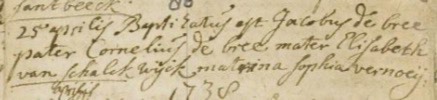 sant beeck
25 aprilis Baptizatus est Jacobus de bree
pater Cornelius de bree mater Elisabeth
van schalck wijck matrina sophia vernoeij.
1738